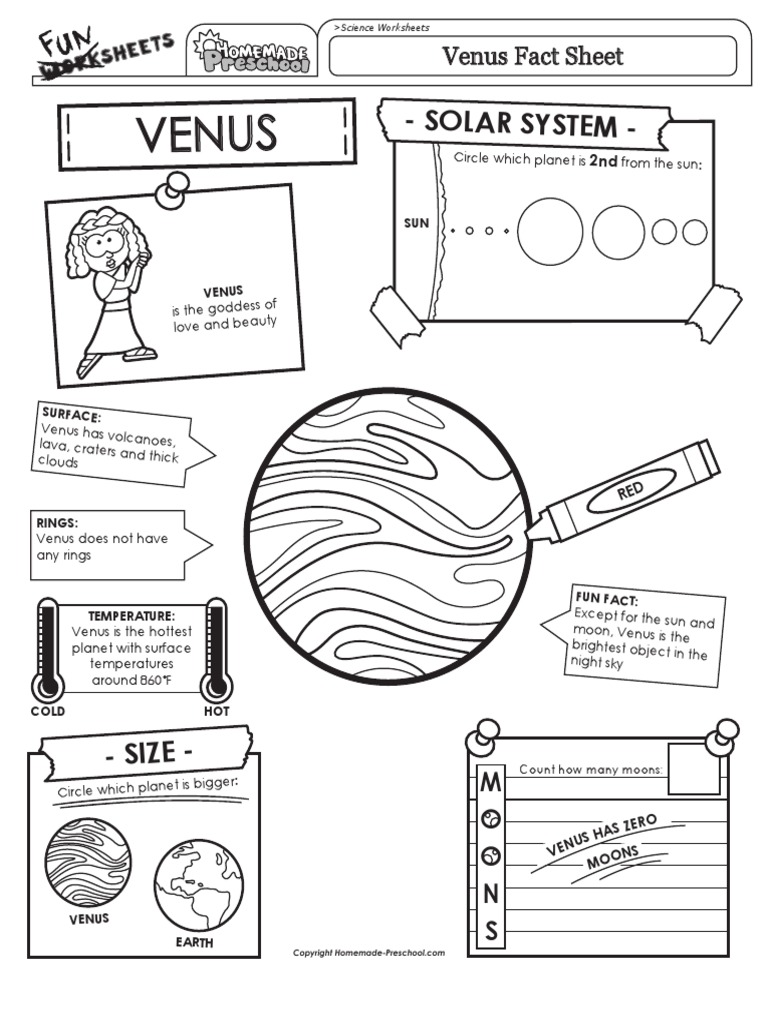 FUN
WORKSHEETS
HOMEMADE
PRESCHOOL
>Science Worksheets
Venus Fact Sheet
VENUS
- SOLAR SYSTEM -
Circle which planet is 2nd from the sun:
SUN
VENUS
is the goddess of
love and beauty
SURFACE:
Venus has volcanoes,
lava, craters and thick
clouds
RED
RINGS:
Venus does not have
any rings
TEMPERATURE:
Venus is the hottest
planet with surface
temperatures
around 860°F
COLD
HOT
FUN FACT:
Except for the sun and
moon, Venus is the
brightest object in the
night sky
- SIZE -
Circle which planet is bigger:
VENUS
EARTH
MOONS
Count how many moons:
VENUS HAS ZERO
MOONS
Copyright Homemade-Preschool.com